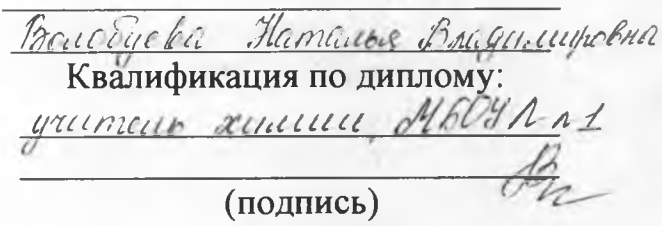 Волобуева Наталья Владимировна
Квалификация по диплому:
учитель химии МБОУ
(подпись)